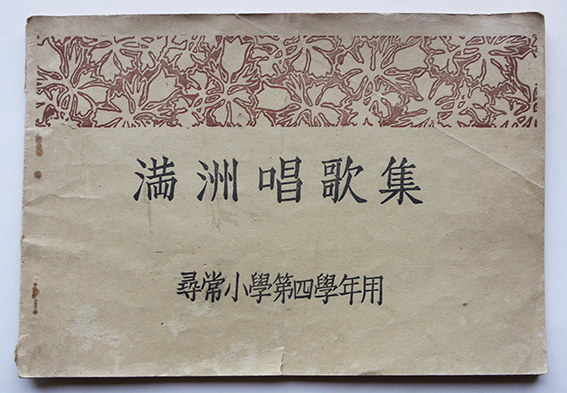 満洲唱歌集
尋常小學第四學年用